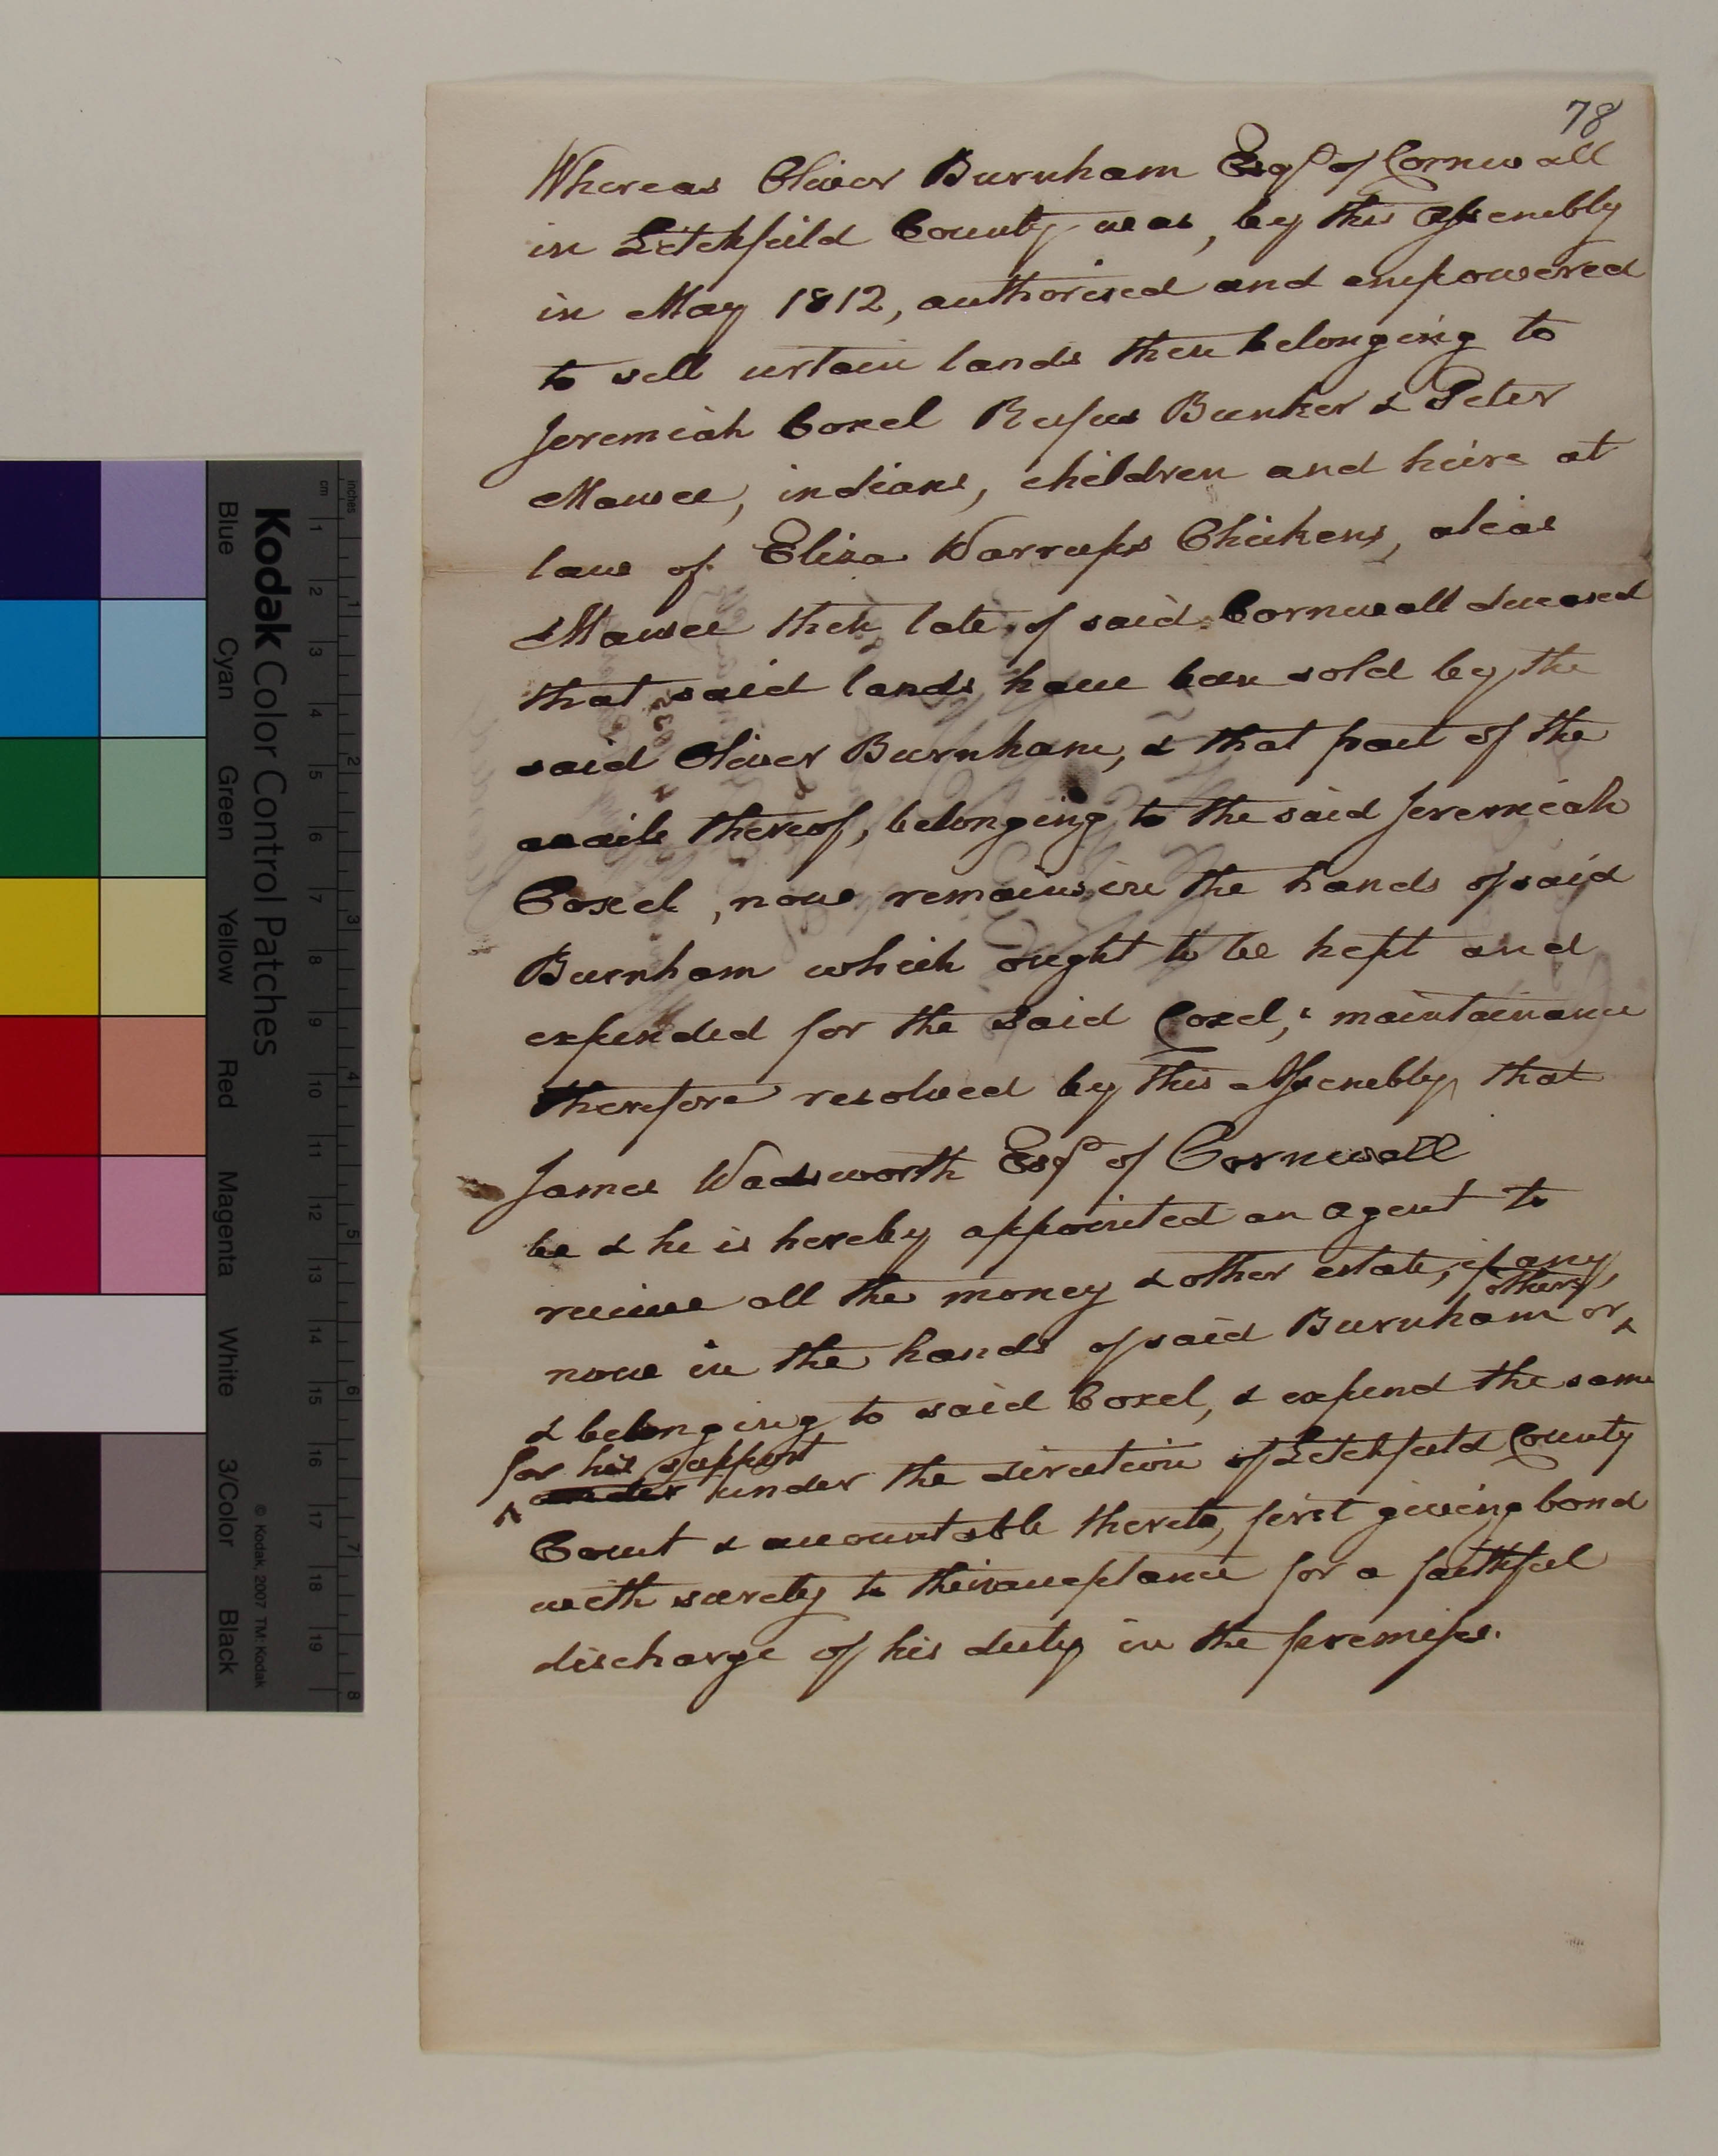 78
Whereas Oliver Burnham Esqr of Cornwall
in Litchfield County was, by this Assembly
in May 1812, authorised and empowered
to sell certain lands then belonging to
Jeremiah Coxel Rufus Bunker & Peter
Mawee, indians, children and heirs at
law of Eliza Warrups Chickens, alias
Mawee then late of said Cornwall deceased
that said lands have been sold by the
said Oliver Burnham, & that part of the
avails thereof, belonging to the said Jeremiah
Coxel, now remains in the hands of said
Burnham which ought to be kept and
expended for the said Coxel,s maintainance
therefore resolved by this Assembly that
James Wadsworth Esqr of Cornwall
be & he is hereby appointed an agent to
receive all the money & other estate, if any,
others
now in the hands of said Burnham or ^
& belonging to said Coxel, & expend the same
for his support
^ under under the direction of Litchfield County
Court & accountable thereto, first giving bond
with surety to their acceptance for a faithful
discharge of his duty in the premises.
Kodak Color Control Patches
Blue Cyan Green Yellow Red Magenta White 3/Color Black
© Kodak, 2007 TM: Kodak
inches 1 2 3 4 5 6 7 8
cm 1 2 3 4 5 6 7 8 9 10 11 12 13 14 15 16 17 18 19